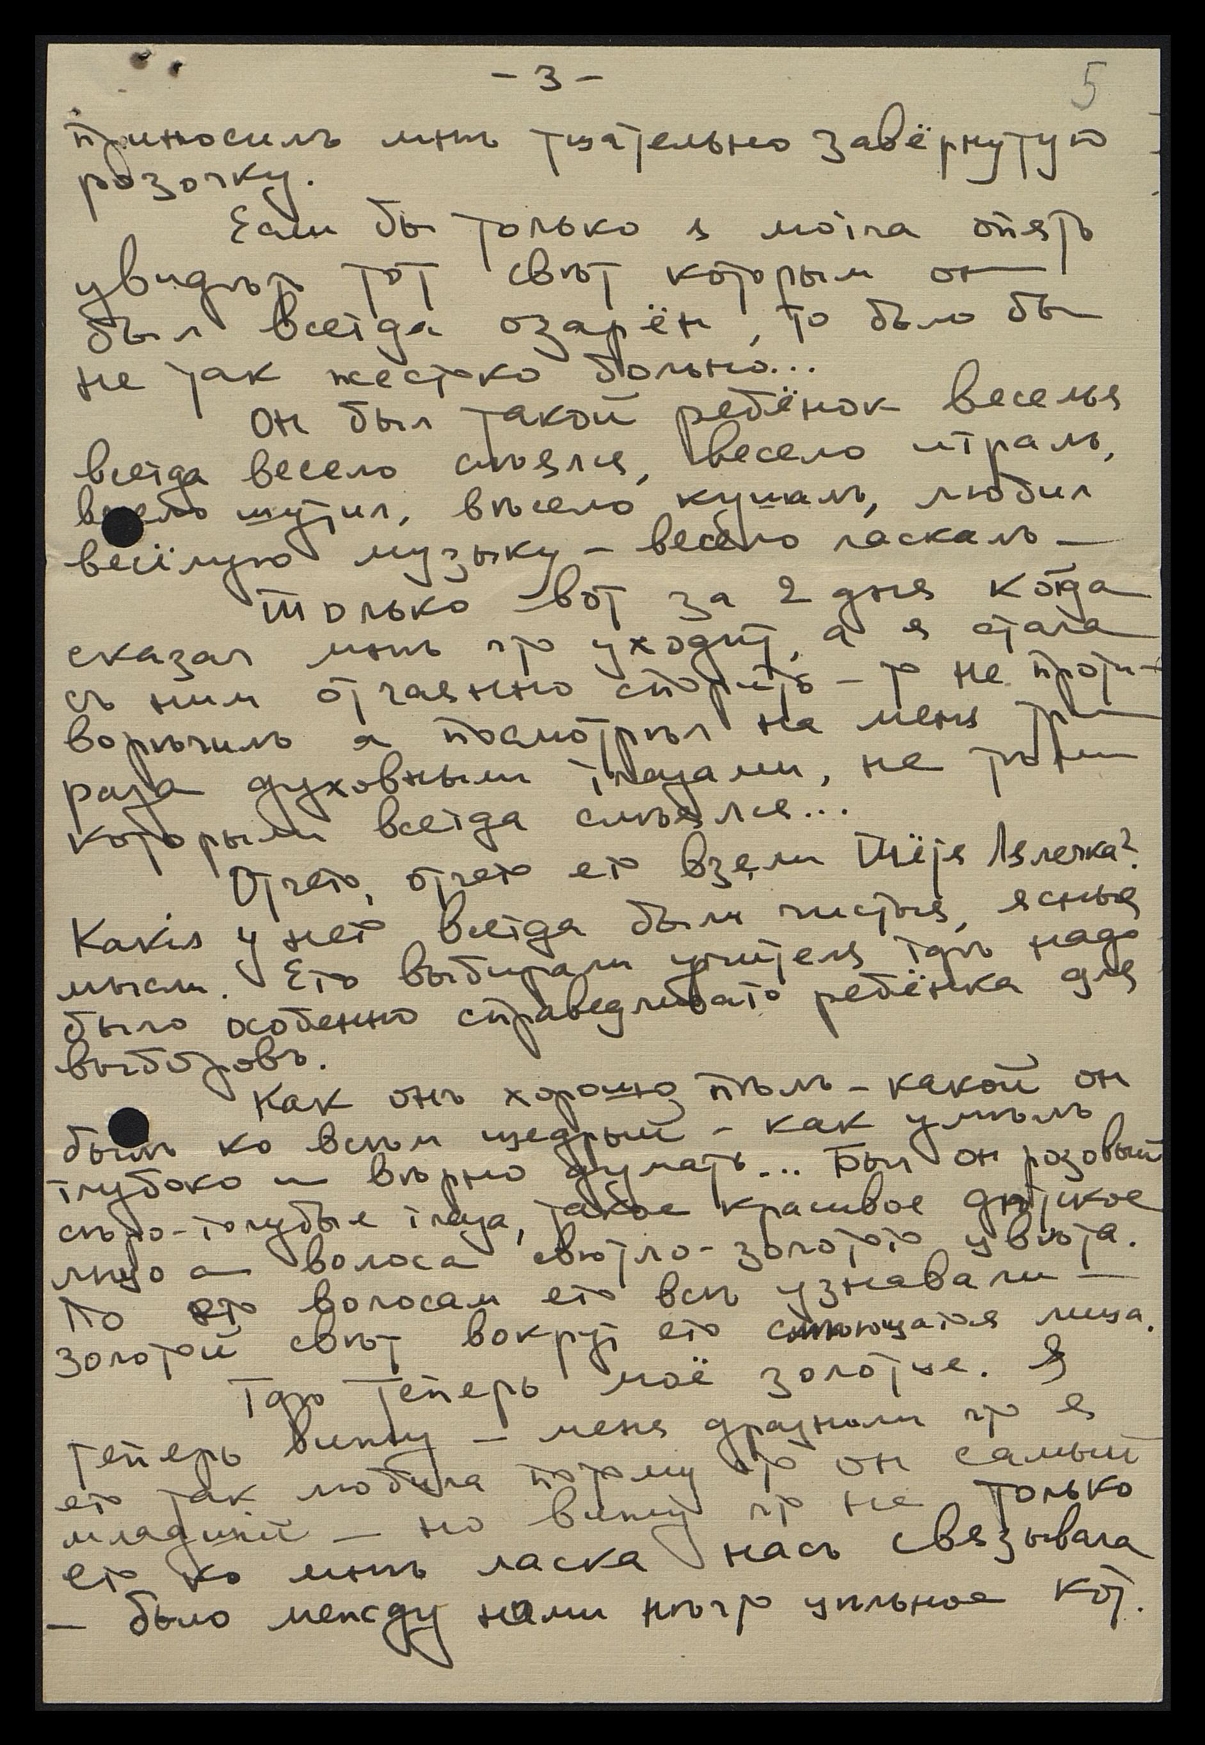 - 3 -
5
приносилъ мнѣ тщательно завёрнутую
розочку.
Если бы только я могла опять
увидѣть тот свѣт которым он
был всегда озарён, то было бы
не так жестоко больно...
Он был такой ребёнок веселья
всегда весело смѣялся, весело игралъ,
весело шутил, вѣсело кушалъ, любил
весёлую музыку - весело ласкалъ -
Только вот за 2 дня когда
сказал мнѣ что уходит, а я стала
съ ним отчаянно спорить - то не проти-
ворѣчилъ а посмотрѣл на меня три
раза духовными глазами, не тѣми
которыми всегда смѣялся...
Отчего, отчего его взяли Тётя Лялечка?
Какія у него всегда были чистыя, ясныя
мысли. Его выбирали учителя гдѣ надо
было особенно справедливаго ребёнка для
выборовъ.
Как онъ хорошо пѣлъ - какой он
былъ ко всѣм щедрый - как умѣлъ
глубоко и вѣрно думать... Был он розовый
сѣро-голубые глаза, такое красивое дѣтское
лицо а волоса свѣтло-золотого цвѣта.
По его волосам его всѣ узнавали -
золотой свѣт вокруг его смѣющагося лица.
Гдѣ теперь моё золотце. Я
теперь вижу - меня дразнили что я
его так любила потому что он самый
младшій - но вижу что не только
его ко мнѣ ласка насъ связывала
- было между нами нѣчто цѣльное кот.